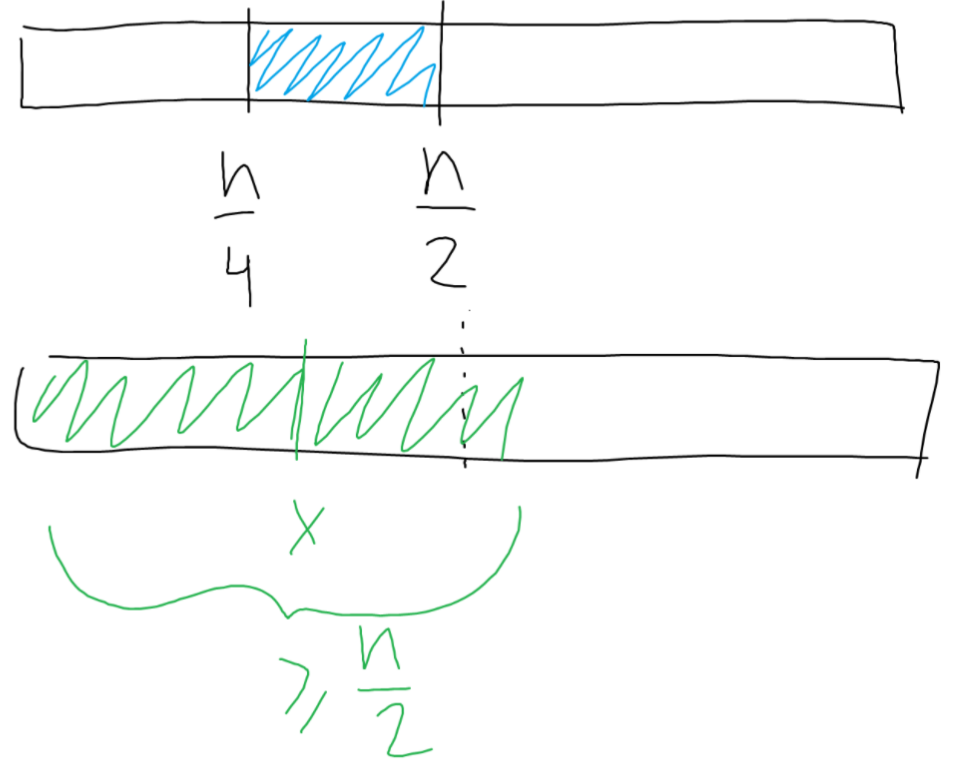 n/4 n/2
x
≥ n/2